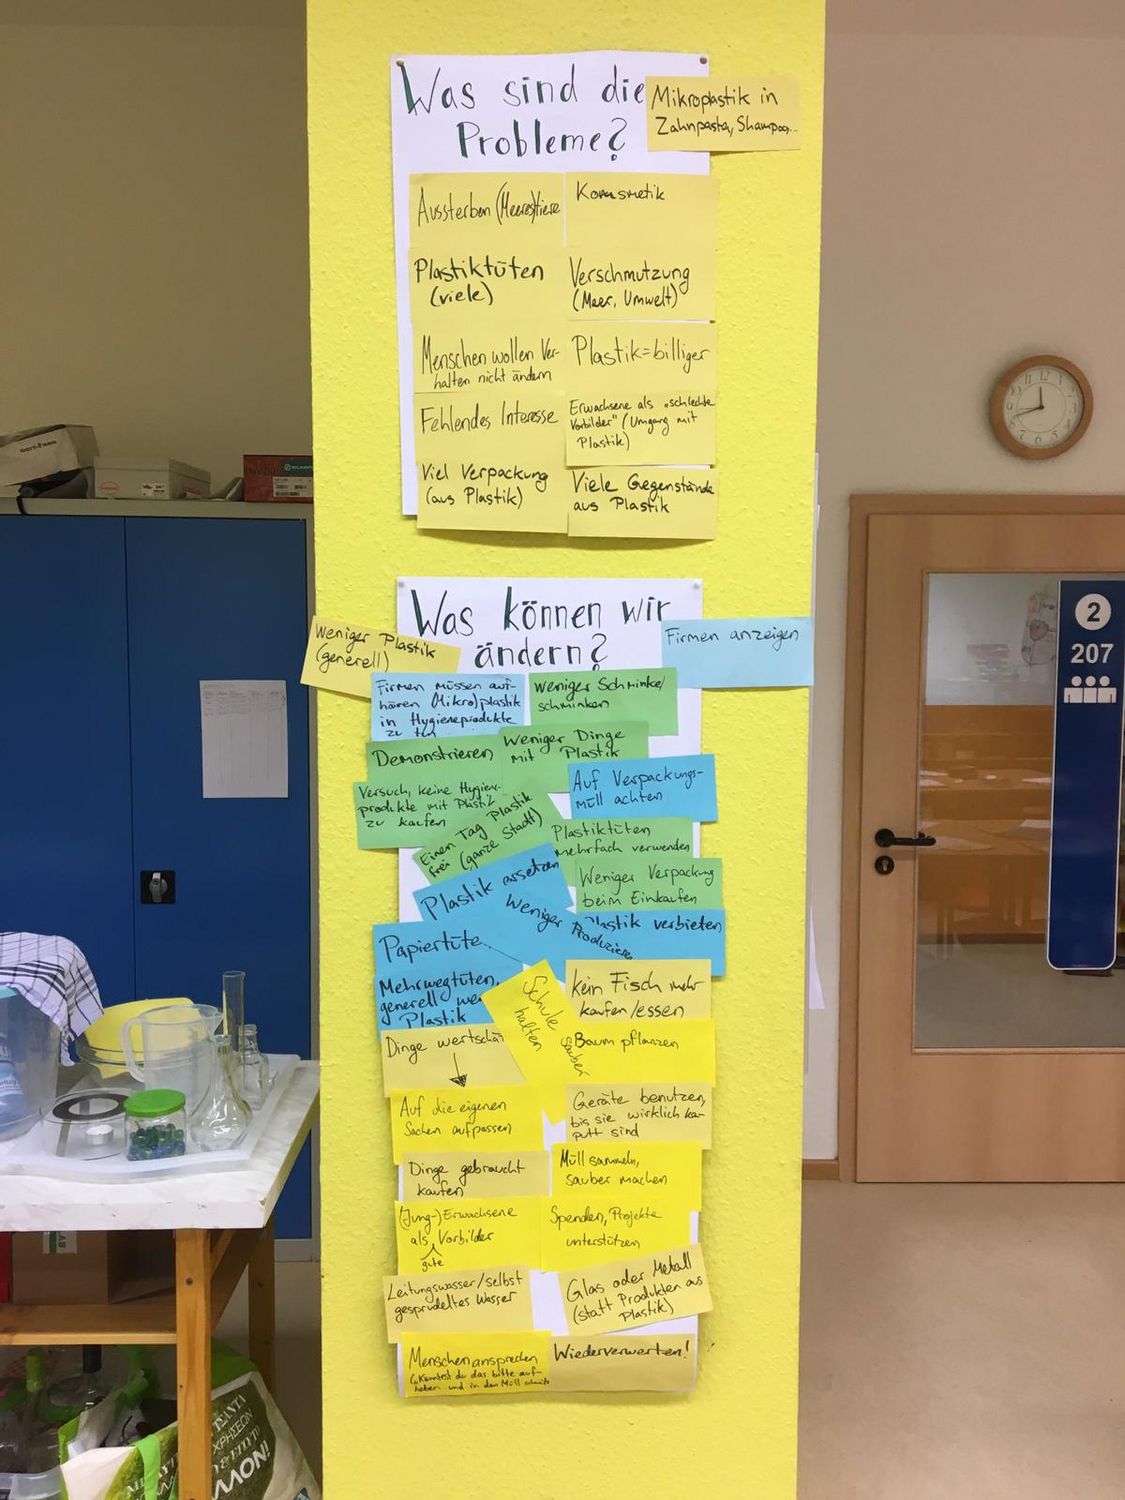 Was sind die
Probleme?
Mikroplastik in
Zahnpasta, Shampoo...
Aussterben (Meeres)tiere
Kosmetik
Plastiktüten
(viele)
Verschmutzung
(Meer, Umwelt)
Menschen wollen Ver-
halten nicht ändern
Plastik=billiger
Fehlendes Interesse
Erwachsene als „schlechte
Vorbilder" (Umgang mit
Plastik)
Viel Verpackung
(aus Plastik)
Viele Gegenstände
aus Plastik
Was können wir
ändern?
Weniger Plastik
(generell)
Firmen anzeigen
Firmen müssen auf-
hören (Mikro)plastik
in Hygieneprodukte
zu tun
Weniger Schminke/
schminken
Demonstrieren
Weniger Dinge
mit Plastik
Versuch, keine Hygien-
produkte mit Plastik
zu kaufen
Auf Verpackungs-
müll achten
Einen Tag Plastik
frei (ganze Stadt)
Plastiktüten
mehrfach verwenden
Weniger Verpackung
beim Einkaufen
Plastik ersetzen
Weniger
Produzieren
Plastik verbieten
Papiertüte
Mehrwegtüten,
generell
Plastik
Schule
sauber
halten
kein Fisch mehr
kaufen/essen
Dinge
Baum pflanzen
Auf die eigenen
Sachen aufpassen
Geräte benutzen,
bis sie wirklich ka-
putt sind
Dinge gebraucht
kaufen
Müll sammeln,
sauber machen
(Jung-)Erwachsene
als Vorbilder
gute
Spenden, Projekte
unterstützen
Leitungswasser/selbst
gesprudeltes Wasser
Glas oder Metall
(statt Produkten aus
Plastik)
Menschen ansprechen
(„Könntest du das bitte auf-
heben und in den Müll
Wiederverwerten!
2
207